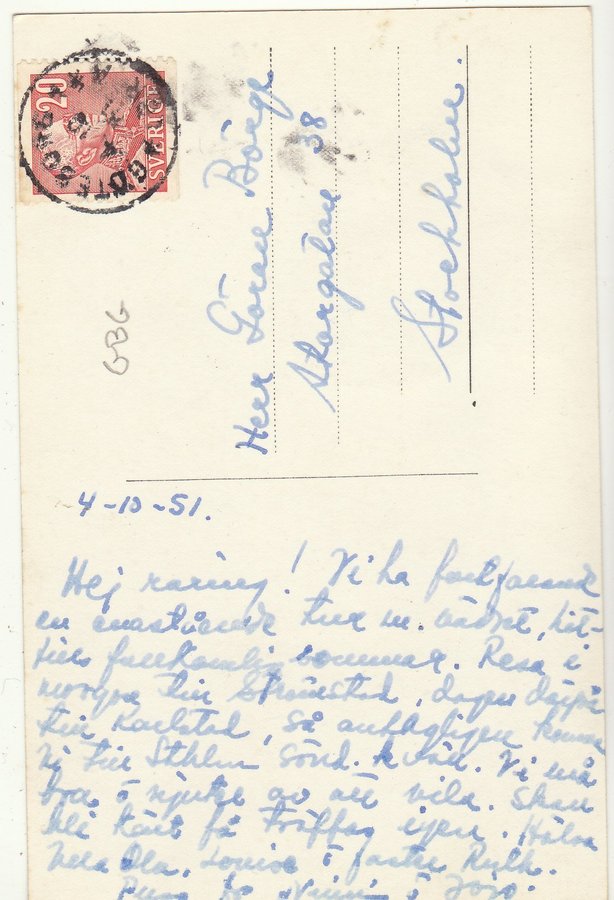 20
SVERIGE
GÖTEBORG
GBG
Herr Göran Börge
Storgatan 38
Stockholm.
4-10-51.
Hej raring! Vi ha fortfarande
en enastående tur m. vädret, hit-
tills fullkomlig sommar. Resa i
morgon till Strömstad, dagen därpå
till Karlstad, så antagligen komma
vi till Sthlm sönd. kväll. Vi må
bra o njuta av att vila. Skall
bli kärt få träffas igen. Hälsa
Ola, Louise o faster Ruth.
o